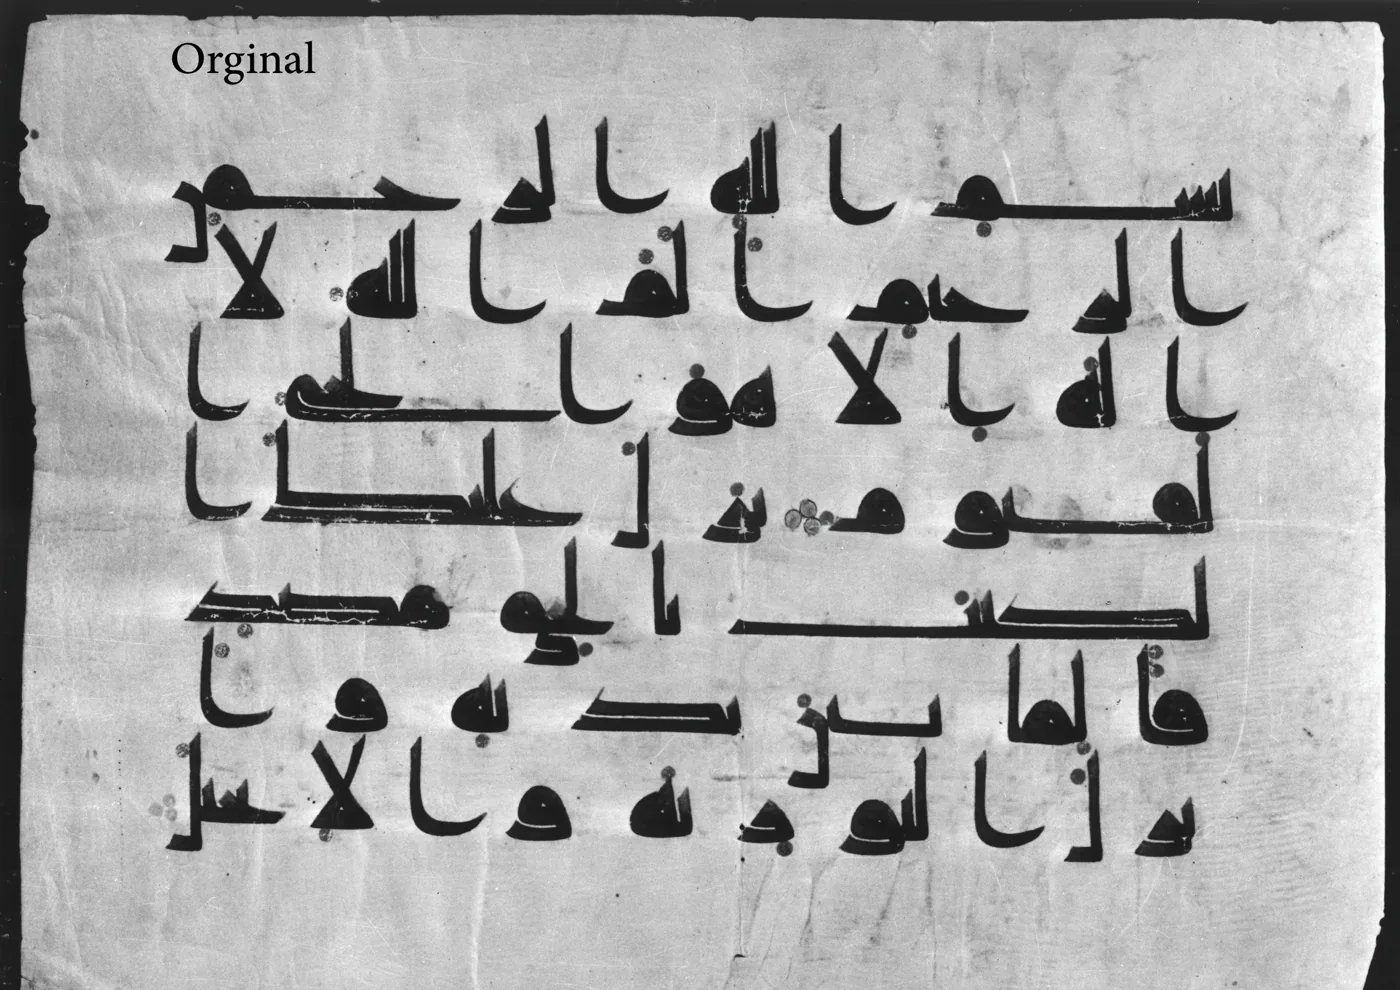 Orginal
بسم الله الرحمن
الرحيم الم الله لا
اله الا هو الحى ا
لقيوم نزل عليك ا
لكتب بالحق مصد
قا لما بين يديه وا
نزل التوريه والانجيل